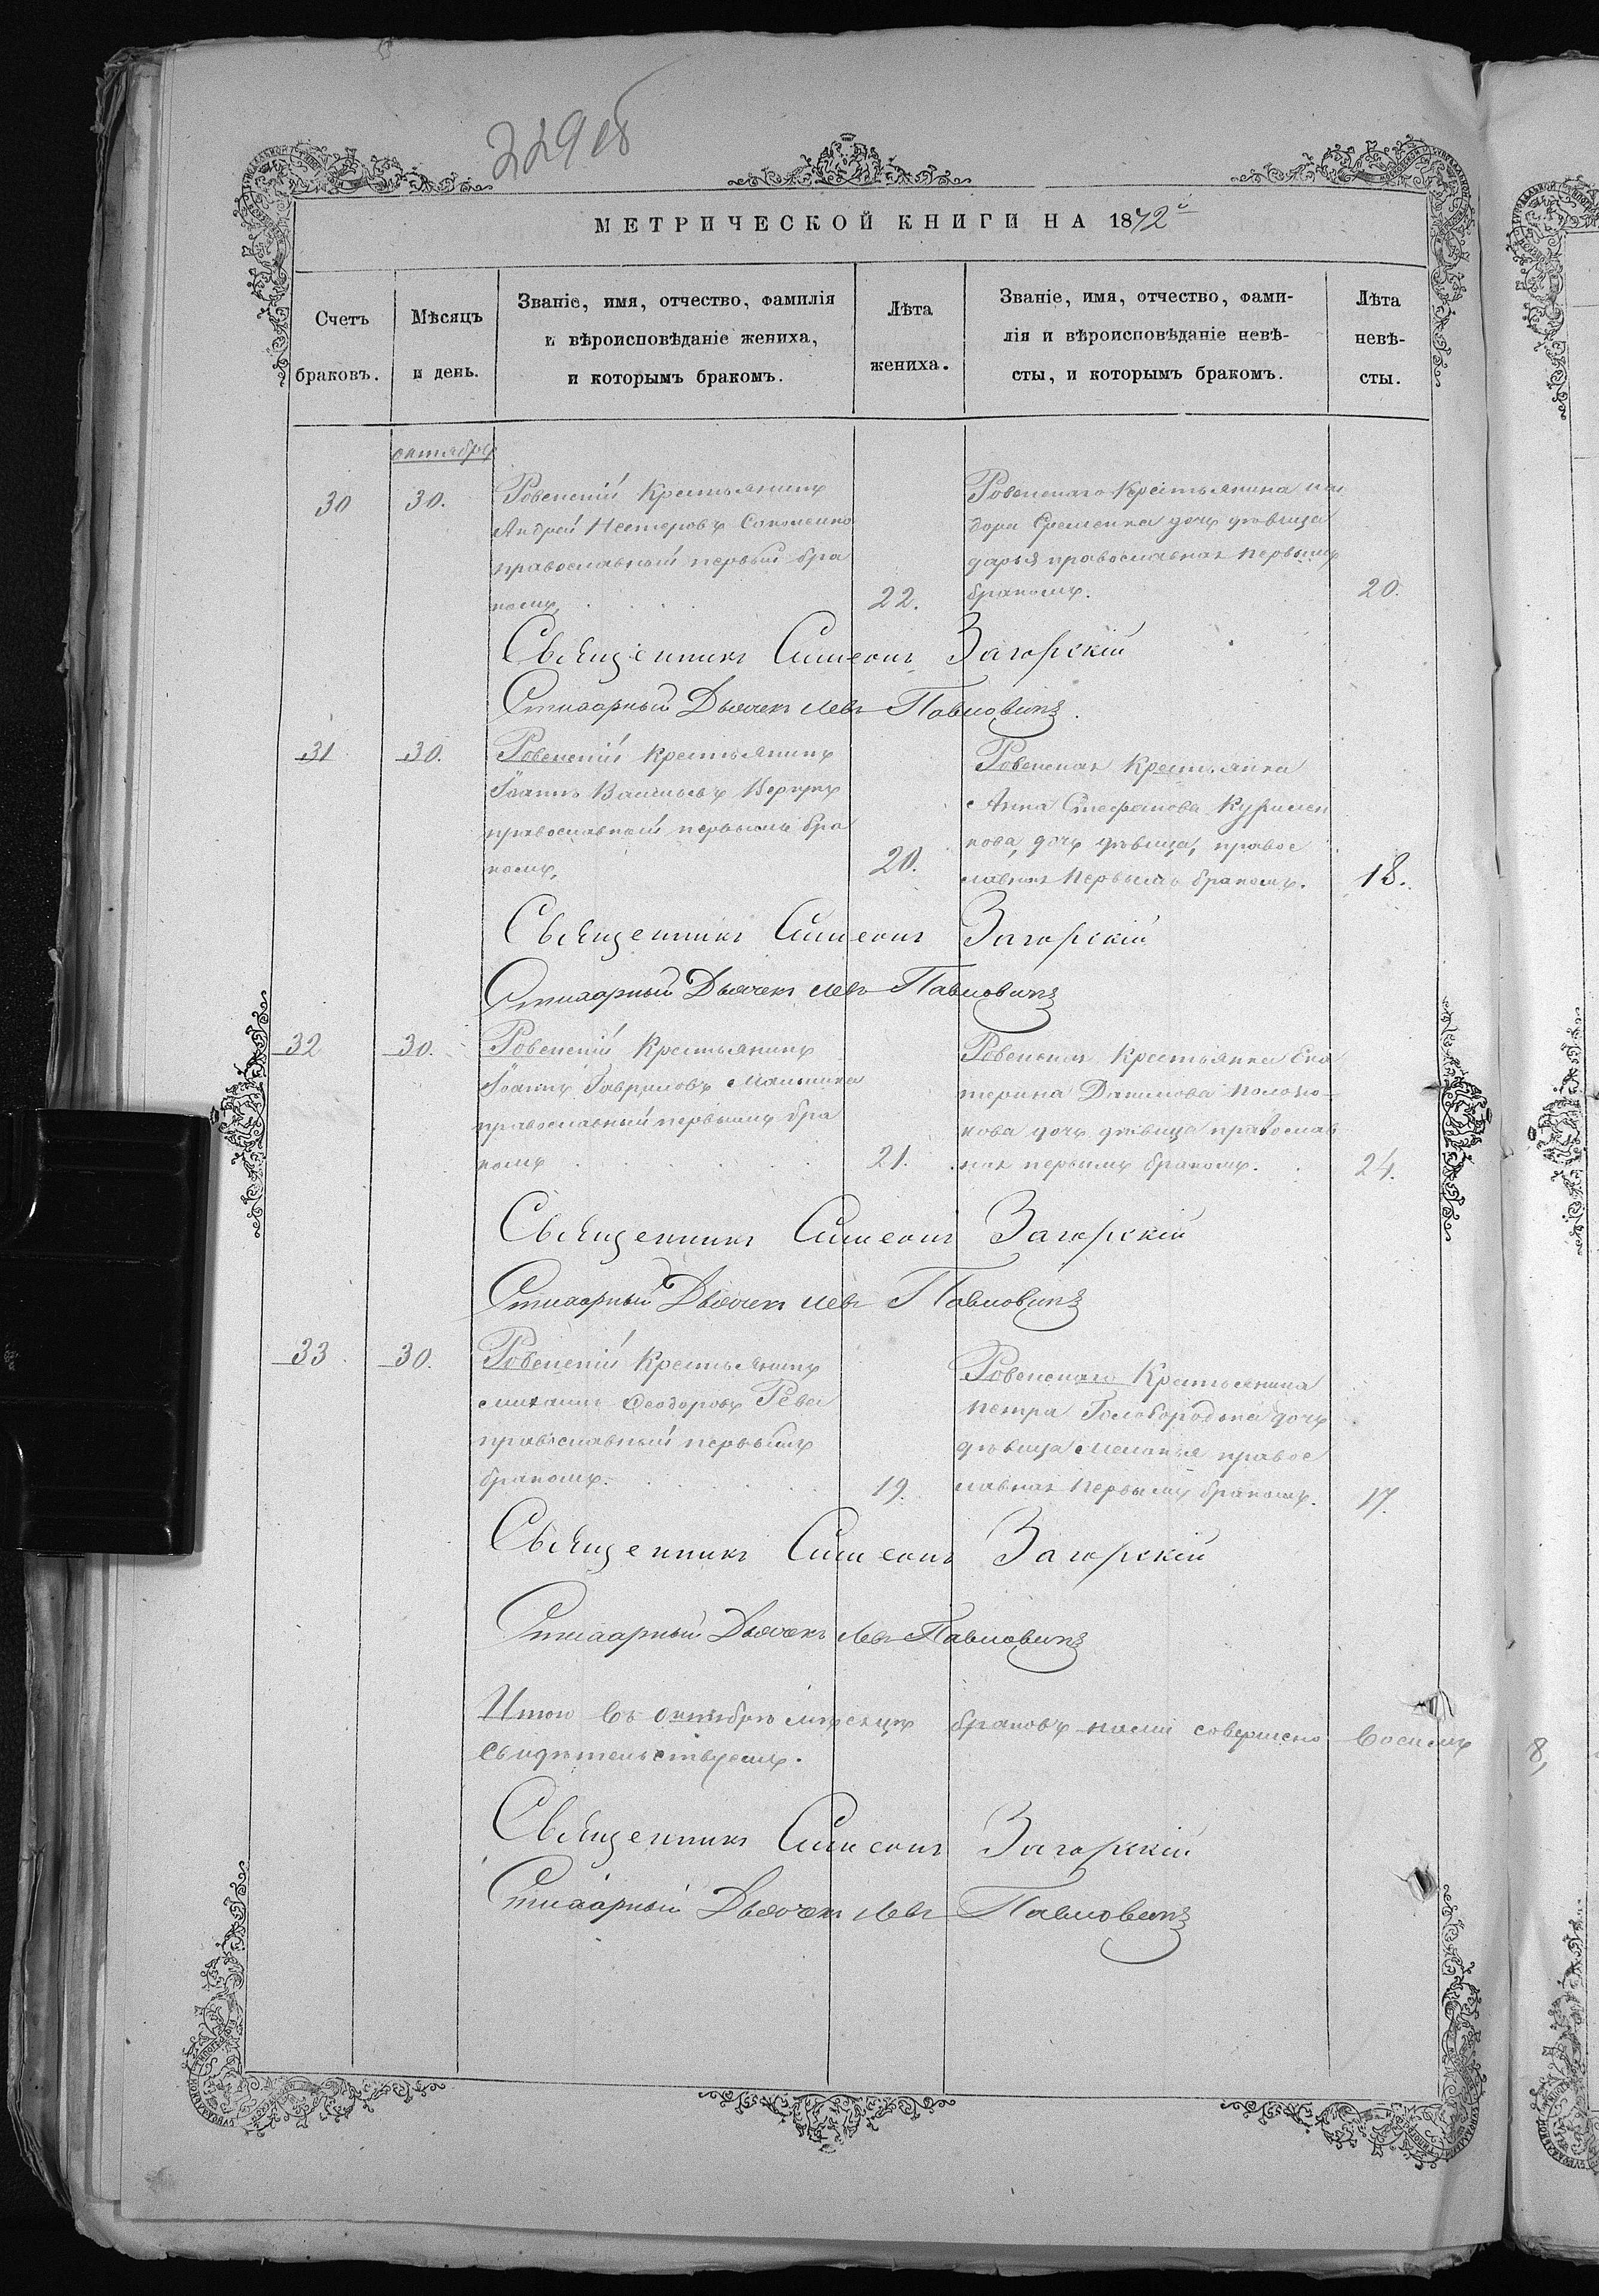 229 об
МЕТРИЧЕСКОЙ КНИГИ НА 1872й
Счетъ
браковъ.
Мѣсяцъ
и день.
Званіе, имя, отчество, фамилія
и вѣроисповѣданіе жениха,
и которымъ бракомъ.
Лѣта
жениха.
Званіе, имя, отчество, фами-
лія и вѣроисповѣданіе невѣ-
сты, и которымъ бракомъ.
Лѣта
невѣ-
сты.
октября
30
30.
Ровенскій Крестьянинъ
Андрей Нестеровъ
православный первый бра
комъ,
22.
Ровенскаго Крестьянина
дора Еременка дочь дѣвица
дарья православная первымъ
бракомъ.
20.
Священникъ Симеонъ Загорскій
Стихарный Дьячекъ Левъ Павловичъ
31
30.
Ровенскій Крестьянинъ
Іоаннъ Васильевъ
православный первымъ бра
комъ,
20.
Ровенская Крестьянка
Анна Стефанова Куримен
кова, дочь дѣвица, правос
лавная первымъ бракомъ.
18.
Священникъ Симеонъ Загорскій
Стихарный Дьячекъ Левъ Павловичъ
32
30.
Ровенскій Крестьянинъ
Іоаннъ Гавриловъ
православный первымъ бра
комъ
21.
Ровенская Крестьянка Ека
терина Данилова
кова дочь дѣвица православ
ная первымъ бракомъ.
24.
Священникъ Симеонъ Загорскій
Стихарный Дьячекъ Левъ Павловичъ
33
30.
Ровенскій Крестьянинъ
Михаилъ Феодоровъ Рева
православный первымъ
бракомъ.
19.
Ровенскаго Крестьянина
Петра Голобородька дочь
дѣвица Меланья правос
лавная первымъ бракомъ.
17.
Священникъ Симеонъ Загорскій
Стихарный Дьячекъ Левъ Павловичъ
Итого въ октябрѣ мѣсяцѣ браковъ нами совершено восемь
свидѣтельствуемъ.
8,
Священникъ Симеонъ Загорскій
Стихарный Дьячекъ Левъ Павловичъ